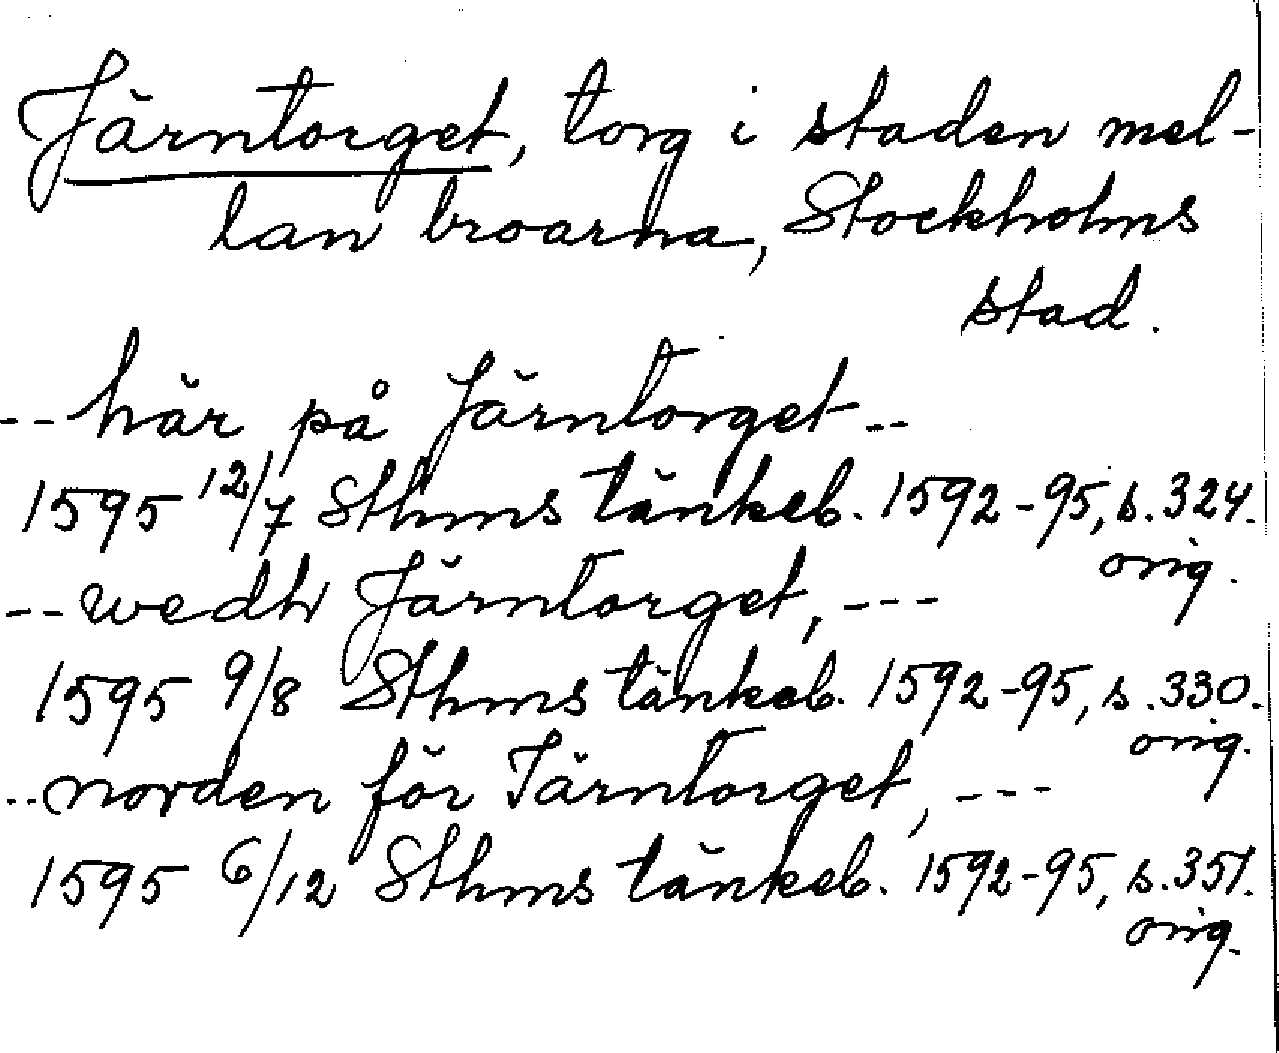 Järntorget, torg i staden mel-
lan broarna, Stockholms
stad.
-- här på Järntorget --
1595 12/7 Sthms tänkeb. 1592-95, s. 324.
orig.
-- wedh Järntorget, ---
1595 9/8 Sthms tänkeb. 1592-95, s. 330.
orig.
-- norden för Järntorget, ---
1595 6/12 Sthms tänkeb. 1592-95, s. 351.
orig.